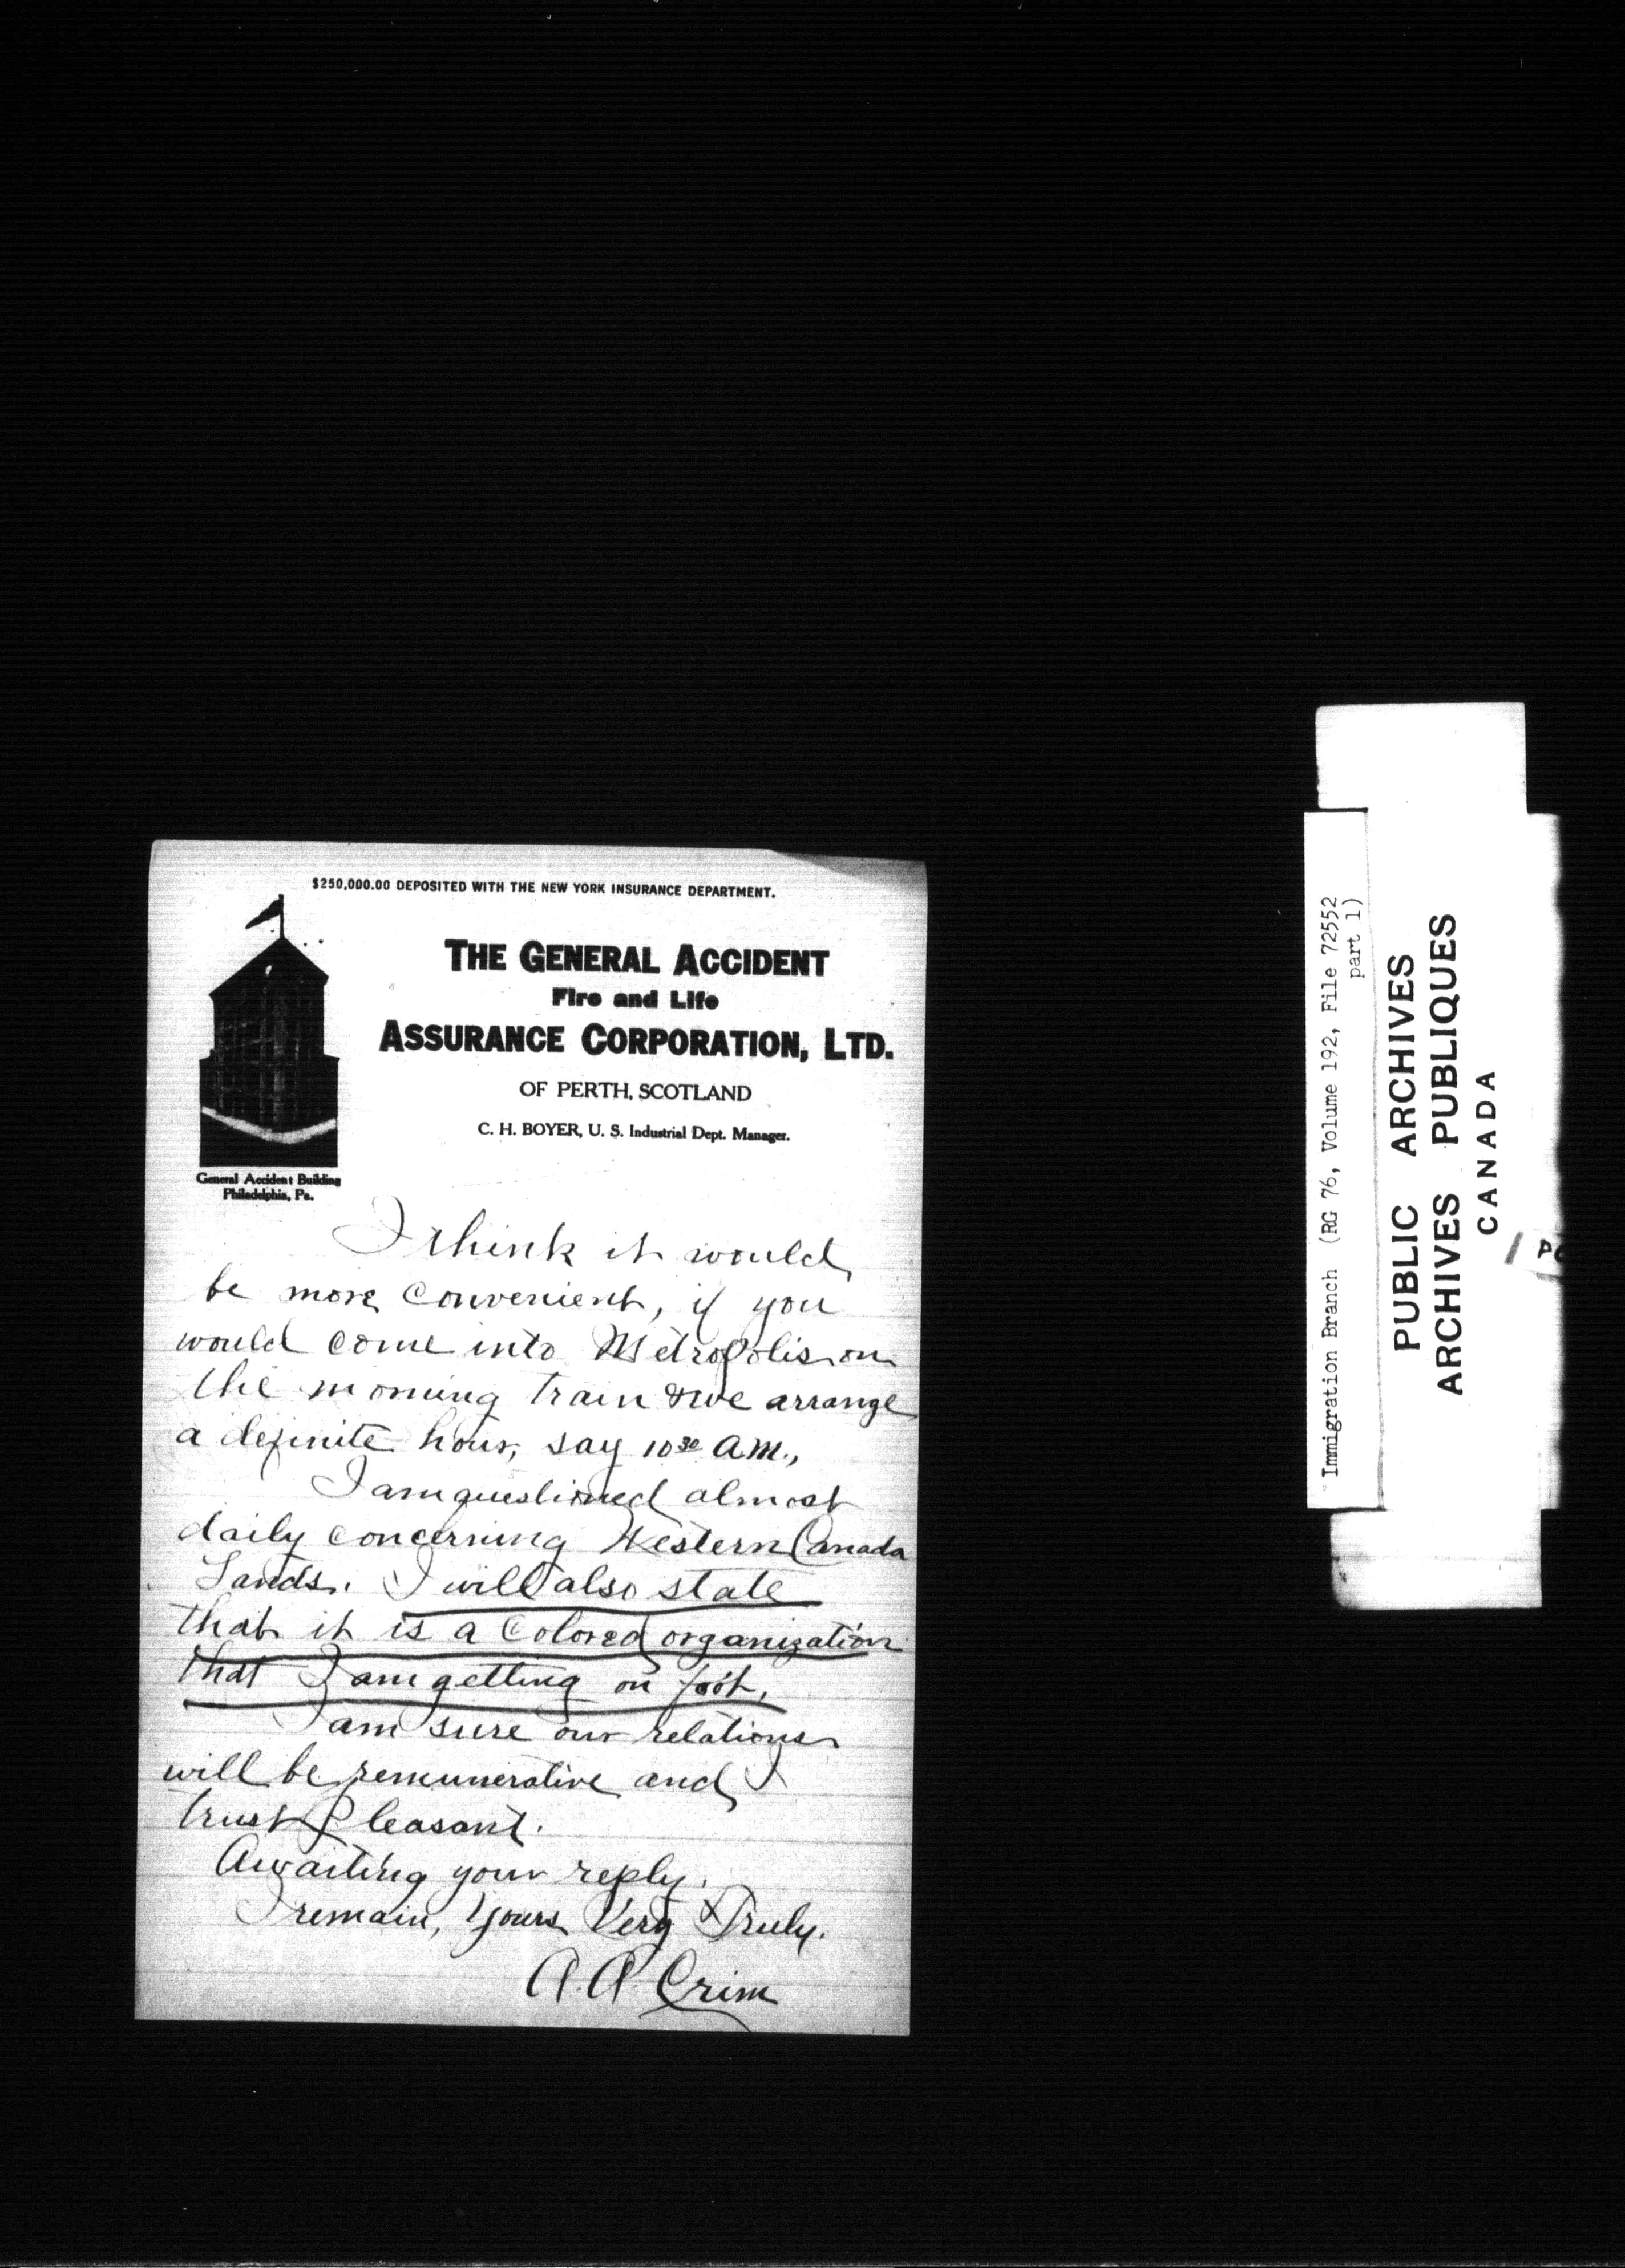 $250,000.00 DEPOSITED WITH THE NEW YORK INSURANCE DEPARTMENT.
THE GENERAL ACCIDENT
Fire and Life
ASSURANCE CORPORATION, LTD.
OF PERTH, SCOTLAND
C. H. BOYER, U. S. Industrial Dept. Manager.
General Accident Building
Philadelphia, Pa.
I think it would
be more convenient, if you
would come into Metropolis on
the morning train & we arrange
a definite hour, say 10 30 A.M.,
I am questioned almost
daily concerning Western Canada
Lands. I will also state
that it is a Colored organization
that I am getting on foot.
I am sure our relations
will be remunerative and I
trust pleasant.
Awaiting your reply.
I remain, Yours Very Truly.
A. A. Crim
Immigration Branch (RG 76, Volume 192, File 72552
part 1)
PUBLIC ARCHIVES
ARCHIVES PUBLIQUES
CANADA